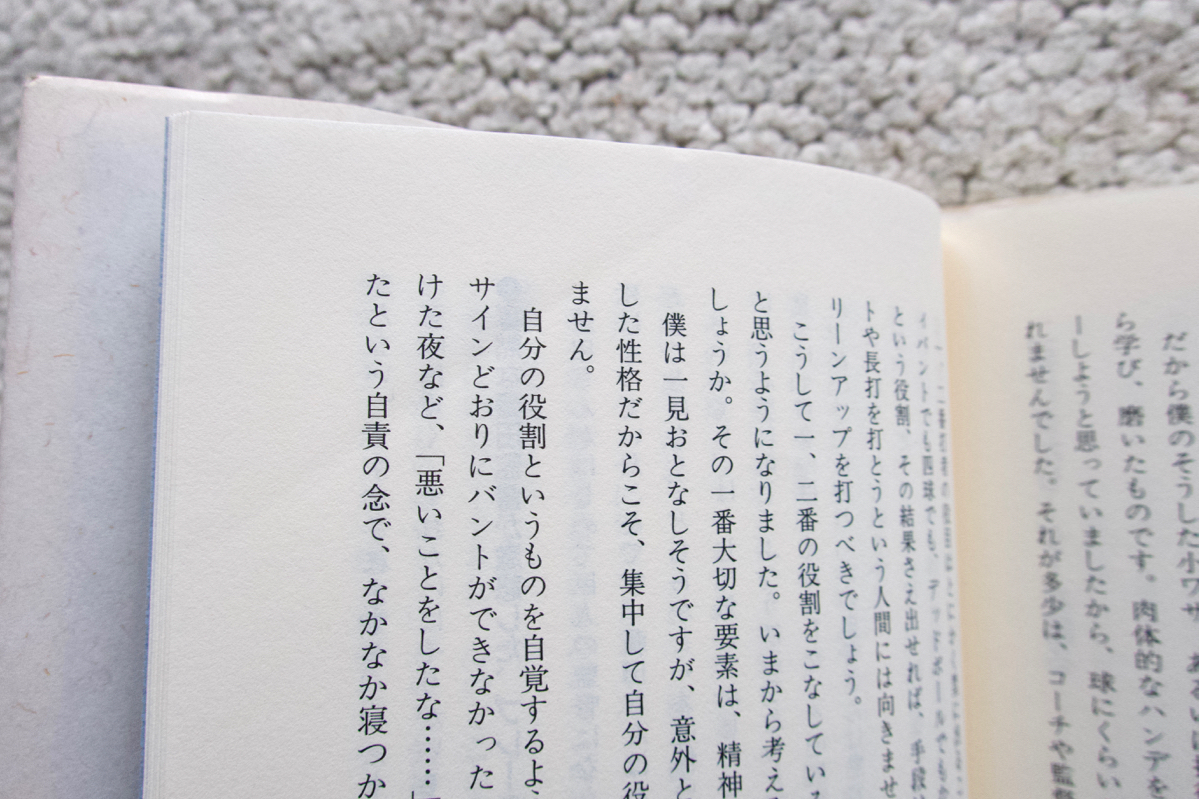 だから僕のそうした小ワザ、あるいは
ら学び、磨いたものです。肉体的なハンデを
ーしようと思っていましたから、球にくらい
れませんでした。それが多少は、コーチや監督
イバントでも四球でも、デッドボールでもな
という役割、その結果さえ出せれば、手段は
トや長打を打とうという人間には向きませ
リーンアップを打つべきでしょう。
こうして一、二番の役割をこなしている
と思うようになりました。いまから考える
しょうか。その一番大切な要素は、精神
僕は一見おとなしそうですが、意外と
した性格だからこそ、集中して自分の役
ません。
自分の役割というものを自覚するよう
サインどおりにバントができなかった
けた夜など、「悪いことをしたな……」
たという自責の念で、なかなか寝つか